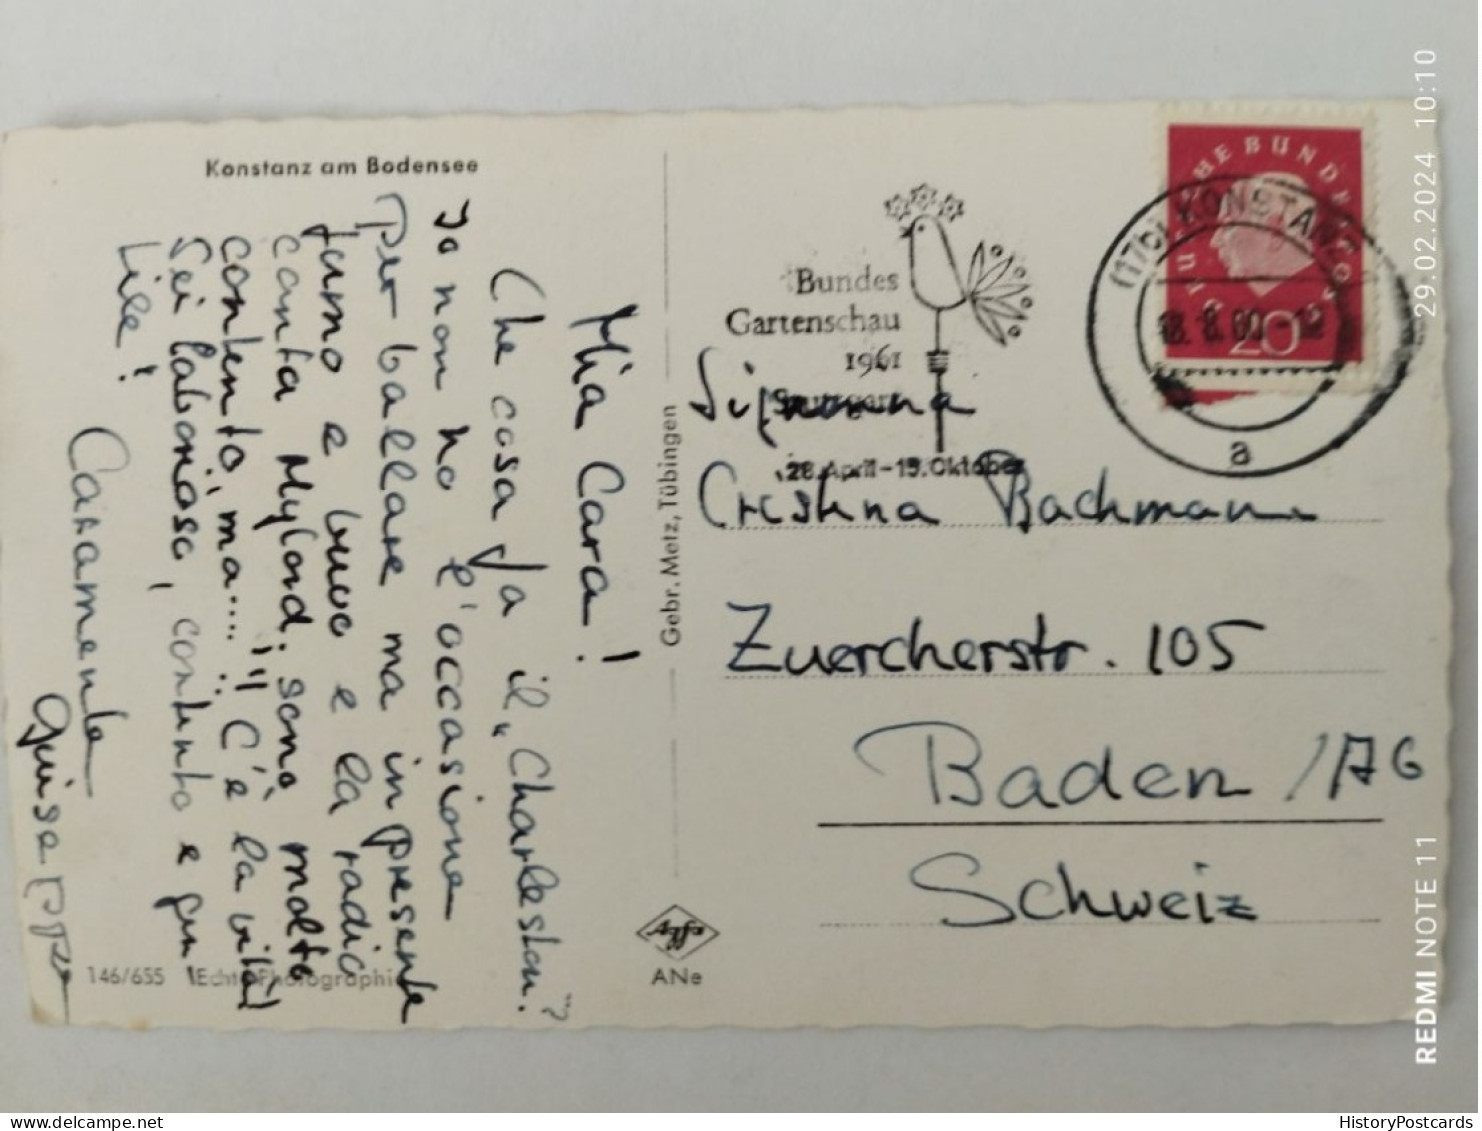 Konstanz am Bodensee
Mia Cara!
Che cosa fa il „Charleston?
Io non ho l'occasione
per ballare ma in presente
fumo e buvo e la radio
canta Mylord. sono molto
contento, ma.... !!! C'è la vita!
Sei laborioso, contento e gen
tile!
Caramente
Guiseppe
146/655 Echte Photographie
Gebr. Metz, Tübingen
Agfa
ANe
Bundes
Gartenschau
1961
Stuttgart
28. April-15. Oktober
DEUTSCHE BUNDESPOST
20
(17b) KONSTANZ
18.8.60-12
a
Signorina
Cristina Bachmann
Zuercherstr. 105
Baden /AG
Schweiz
REDMI NOTE 11
29.02.2024 10:10
HistoryPostcards